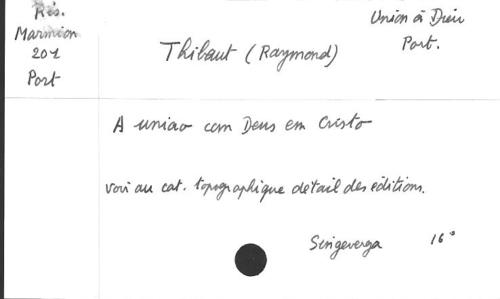 Rés.
Marmion
201
Port
Union à Dieu
Port.
Thibaut (Raymond)
A uniao com Deus em Cristo
voir au cat. topographique détail des éditions.
Singeverga 16°